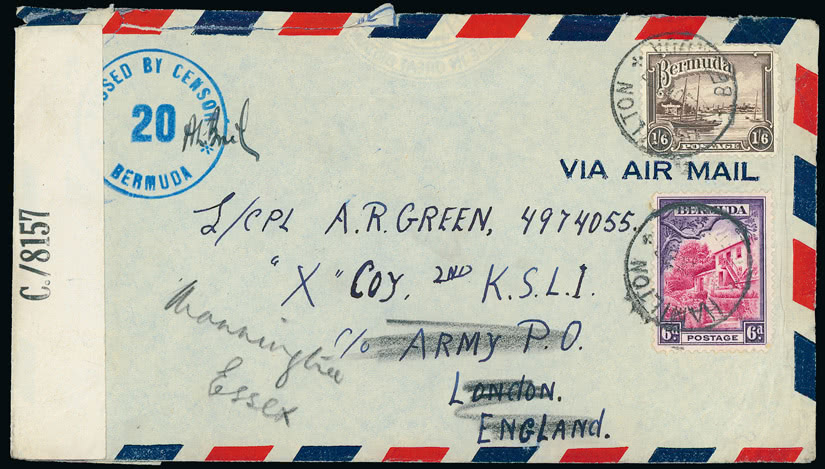 C./8157
PASSED BY CENSOR
20
BERMUDA
Bermuda
1/6 1/6
POSTAGE
HAMILTON
VIA AIR MAIL
L/CPL A.R. GREEN, 4974055.
"X" COY. 2ND K.S.L.I.
c/o ARMY P.O.
LONDON.
ENGLAND.
Manningtree
Essex
BERMUDA
6d 6d
POSTAGE
HAMILTON